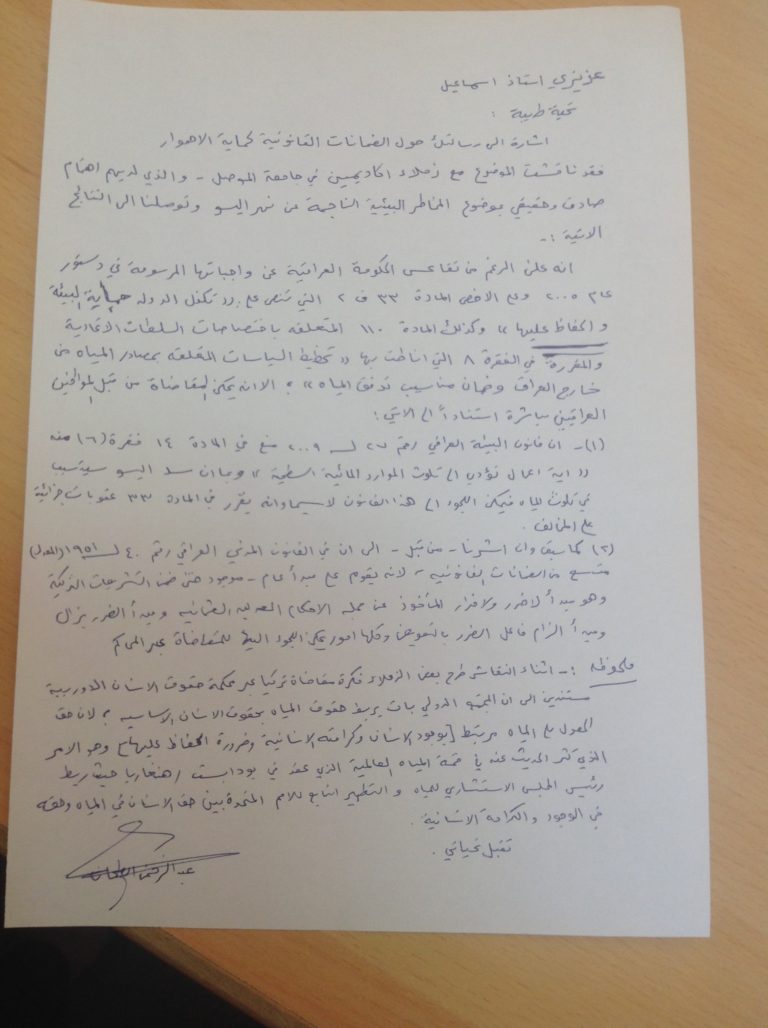 عزيزي استاذ اسماعيل
تحية طيبة :
اشارة الى رسالتك حول الضمانات القانونية لحماية الاهوار
فقد ناقشت الموضوع مع زملاء اكاديميين في جامعة الموصل - والذي لديهم اهتمام
صادق وحقيقي بموضوع المخاطر البيئية الناجمة عن سد اليسو وتوصلنا الى النتائج
الاتية :-
انه على الرغم من تقاعس الحكومة العراقية عن واجباتها المرسومة في دستور
عام ٢٠٠٥ وعلى الاخص المادة ٣٣ ف ٢ التي تنص على (( تكفل الدولة حماية البيئة
والحفاظ عليها )) وكذلك المادة ١١٠ المتعلقه باختصاصات السلطات الاتحادية
والمقررة في الفقرة ٨ التي اناطت بها (( تخطيط السياسات المتعلقه بمصادر المياه من
خارج العراق وضمان مناسيب تدفق المياه )) ، الا انه يمكن المقاضاة من قبل المواطنين
العراقيين مباشرة استناداً الى الاتي :
(١)- ان قانون البيئة العراقي رقم ٢٧ لسـ ٢٠٠٩ منع في المادة ١٤ فقرة (٦) منه
(( اية اعمال تؤدي الى تلوث الموارد المائية السطحية )) وما ان سد اليسو سيتسبب
في تلوث المياه فيمكن اللجوء الى هذا القانون لاسيما وانه يقرر في المادة ٣٣ عقوبات جزائية
على المخالف .
(٢) كما سبق وان اشرنا - من قبل - الى ان في القانون المدني العراقي رقم ٤٠ لسـ ١٩٥١ (المعدل)
متسع من الضمانات القانونية ، لانه يقوم على مبدأ عام - موجود حتى ضمن التشريعات التركية
وهو مبدأ لا ضرر ولا ضرار المأخوذ عن مجلة الاحكام العدلية العثمانية ومبدأ الضرر يزال
ومبدأ الزام فاعل الضرر بالتعويض وكلها امور يمكن اللجوء اليها للمقاضاة عبر المحاكم
ملحوظه :- اثناء النقاش طرح بعض الزملاء فكرة مقاضاة تركيا عبر محكمة حقوق الانسان الاوربية
مستندين الى ان المجتمع الدولي بات يربط حقوق المياه بحقوق الانسان الاساسيه ، لان حق
الحصول على المياه مرتبط [بوجود الانسان وكرامته الانسانية وضرورة الحفاظ عليها] وهو الامر
الذي كثر الحديث عنه في قمة المياه العالمية الذي عقد في بودابست / هنغاريا حيث ربط
رئيس المجلس الاستشاري للمياه والتطهير التابع للامم المتحدة بين حق الانسان في المياه وحقه
في الوجود والكرامة الانسانية .
تقبل تحياتي .
عبد الرحمن